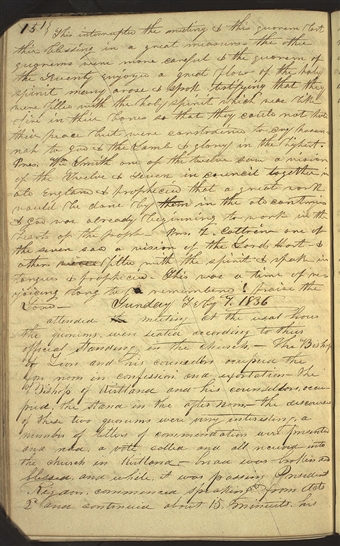 151
This interrupted the meeting & this quorum lost
their blessing in a great measure the other
quorums were more careful & the quorum of
the Seventy enjoyed a great flow of the holy
spirit many arose & spok testifying that they
were filled with the holy spirit which was like
fire in their bones so that they could not hold
their peace but were constrained to cry hosan-
nah to God & the Lamb & glory in the highest.
Pres. Wm Smith one of the twelve saw a vision
of the Twelve & Seven in council together in
old England & prophecied that a great work
would be done by them in the old countries
& God was already beginning to work in the
hearts of the people— Pres. Z. Coltrin one of
the seven saw a vision of the Lords Host— &
others were filled with the spirit & spake in
tongues & prophecied— This was a time of re-
joicing long to be remembered! praise the
Lord—
Sunday Feby 7, 1836
attended meeting at the usual hour
the quorums were seated according to their
official Standing in the church— The Bishop
of Zion and his counsellors occupied the
fore noon in confession and exortation— The
Bishop of Kirtland and his counsellors, occu-
pied, the stand in the afternoon— the discourses
of these two quorums were very interesting, a
number of letters of commendation were presented
and read, a vote called and all received into
the church in Kirtland— bread was broken &
blessed and while it was passing President
Rigdon, commenced speaking from Acts
2d and continued about 15, minutes, his